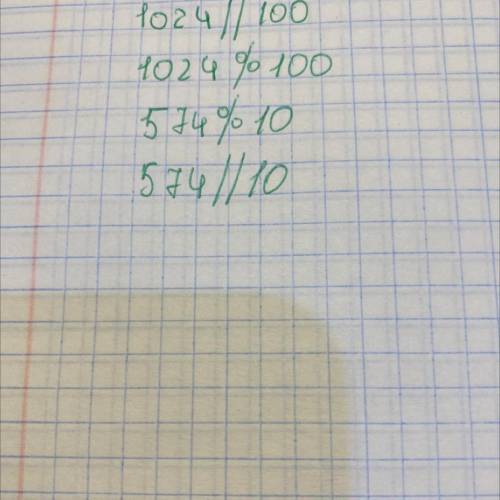 1024//100
1024%100
574%10
574//10